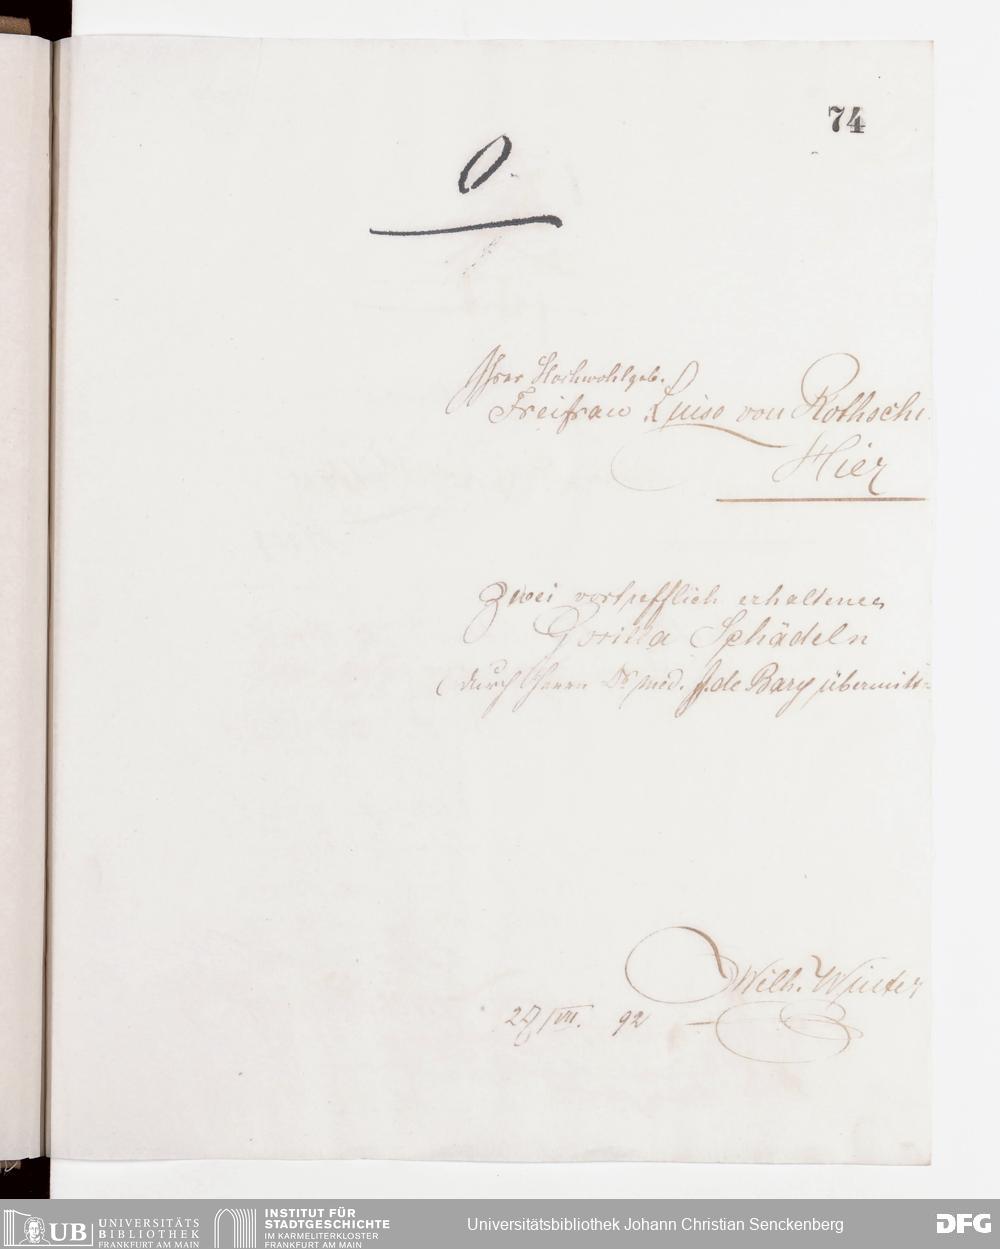 74
O.
Ihrer Hochwohlgeb.
Freifrau Luise von Rothschi
Hier
Zwei vortrefflich erhaltenen
Gorilla Schädeln
durch Herrn Dr med. J. de Bary übermitt
Wilh. Winter
27/VII. 92
UB
UNIVERSITÄTS
BIBLIOTHEK
FRANKFURT AM MAIN
INSTITUT FÜR
STADTGESCHICHTE
IM KARMELITERKLOSTER
FRANKFURT AM MAIN
Universitätsbibliothek Johann Christian Senckenberg
DFG